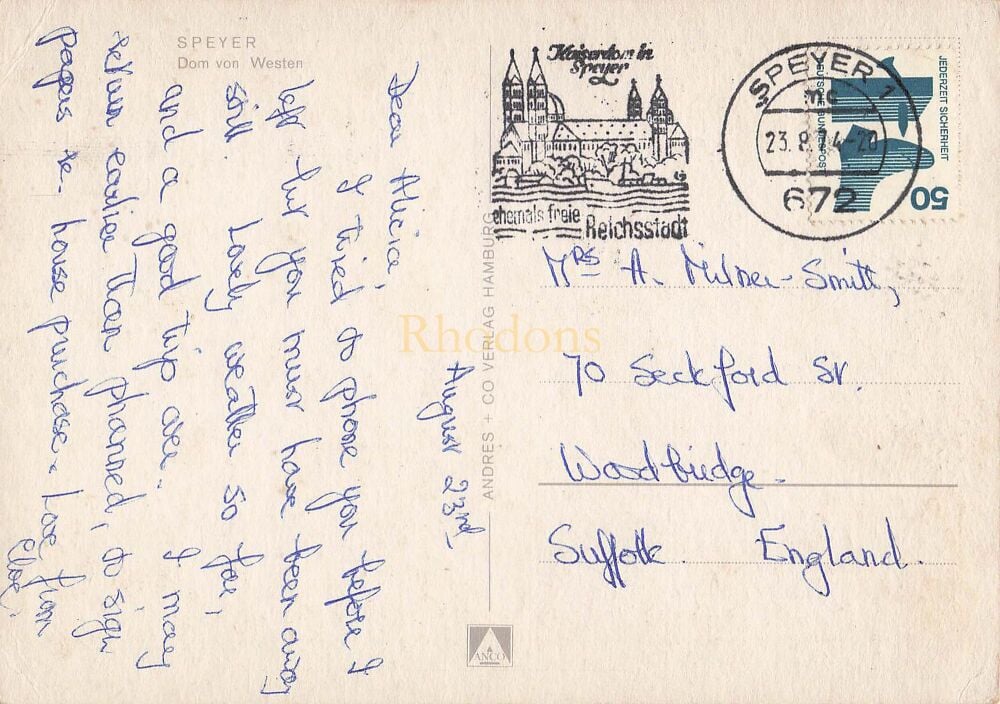 SPEYER
Dom von Westen
August 23rd
Dear Alicia,
I tried to phone you before I
left but you must have been away
still. Lovely weather so far,
and a good trip over. I may
return earlier than planned, to sign
papers re. house purchase. Love from
ANDRES + CO VERLAG HAMBURG
ANCO
Kaiserdom in
Speyer
ehemals freie Reichsstadt
SPEYER 1
mc
23.8.74-20
672
JEDERZEIT SICHERHEIT
DEUTSCHE BUNDESPOST
50
Mrs A. Milner-Smith,
70 Seckford St.
Woodbridge.
Suffolk England.
Rhodons